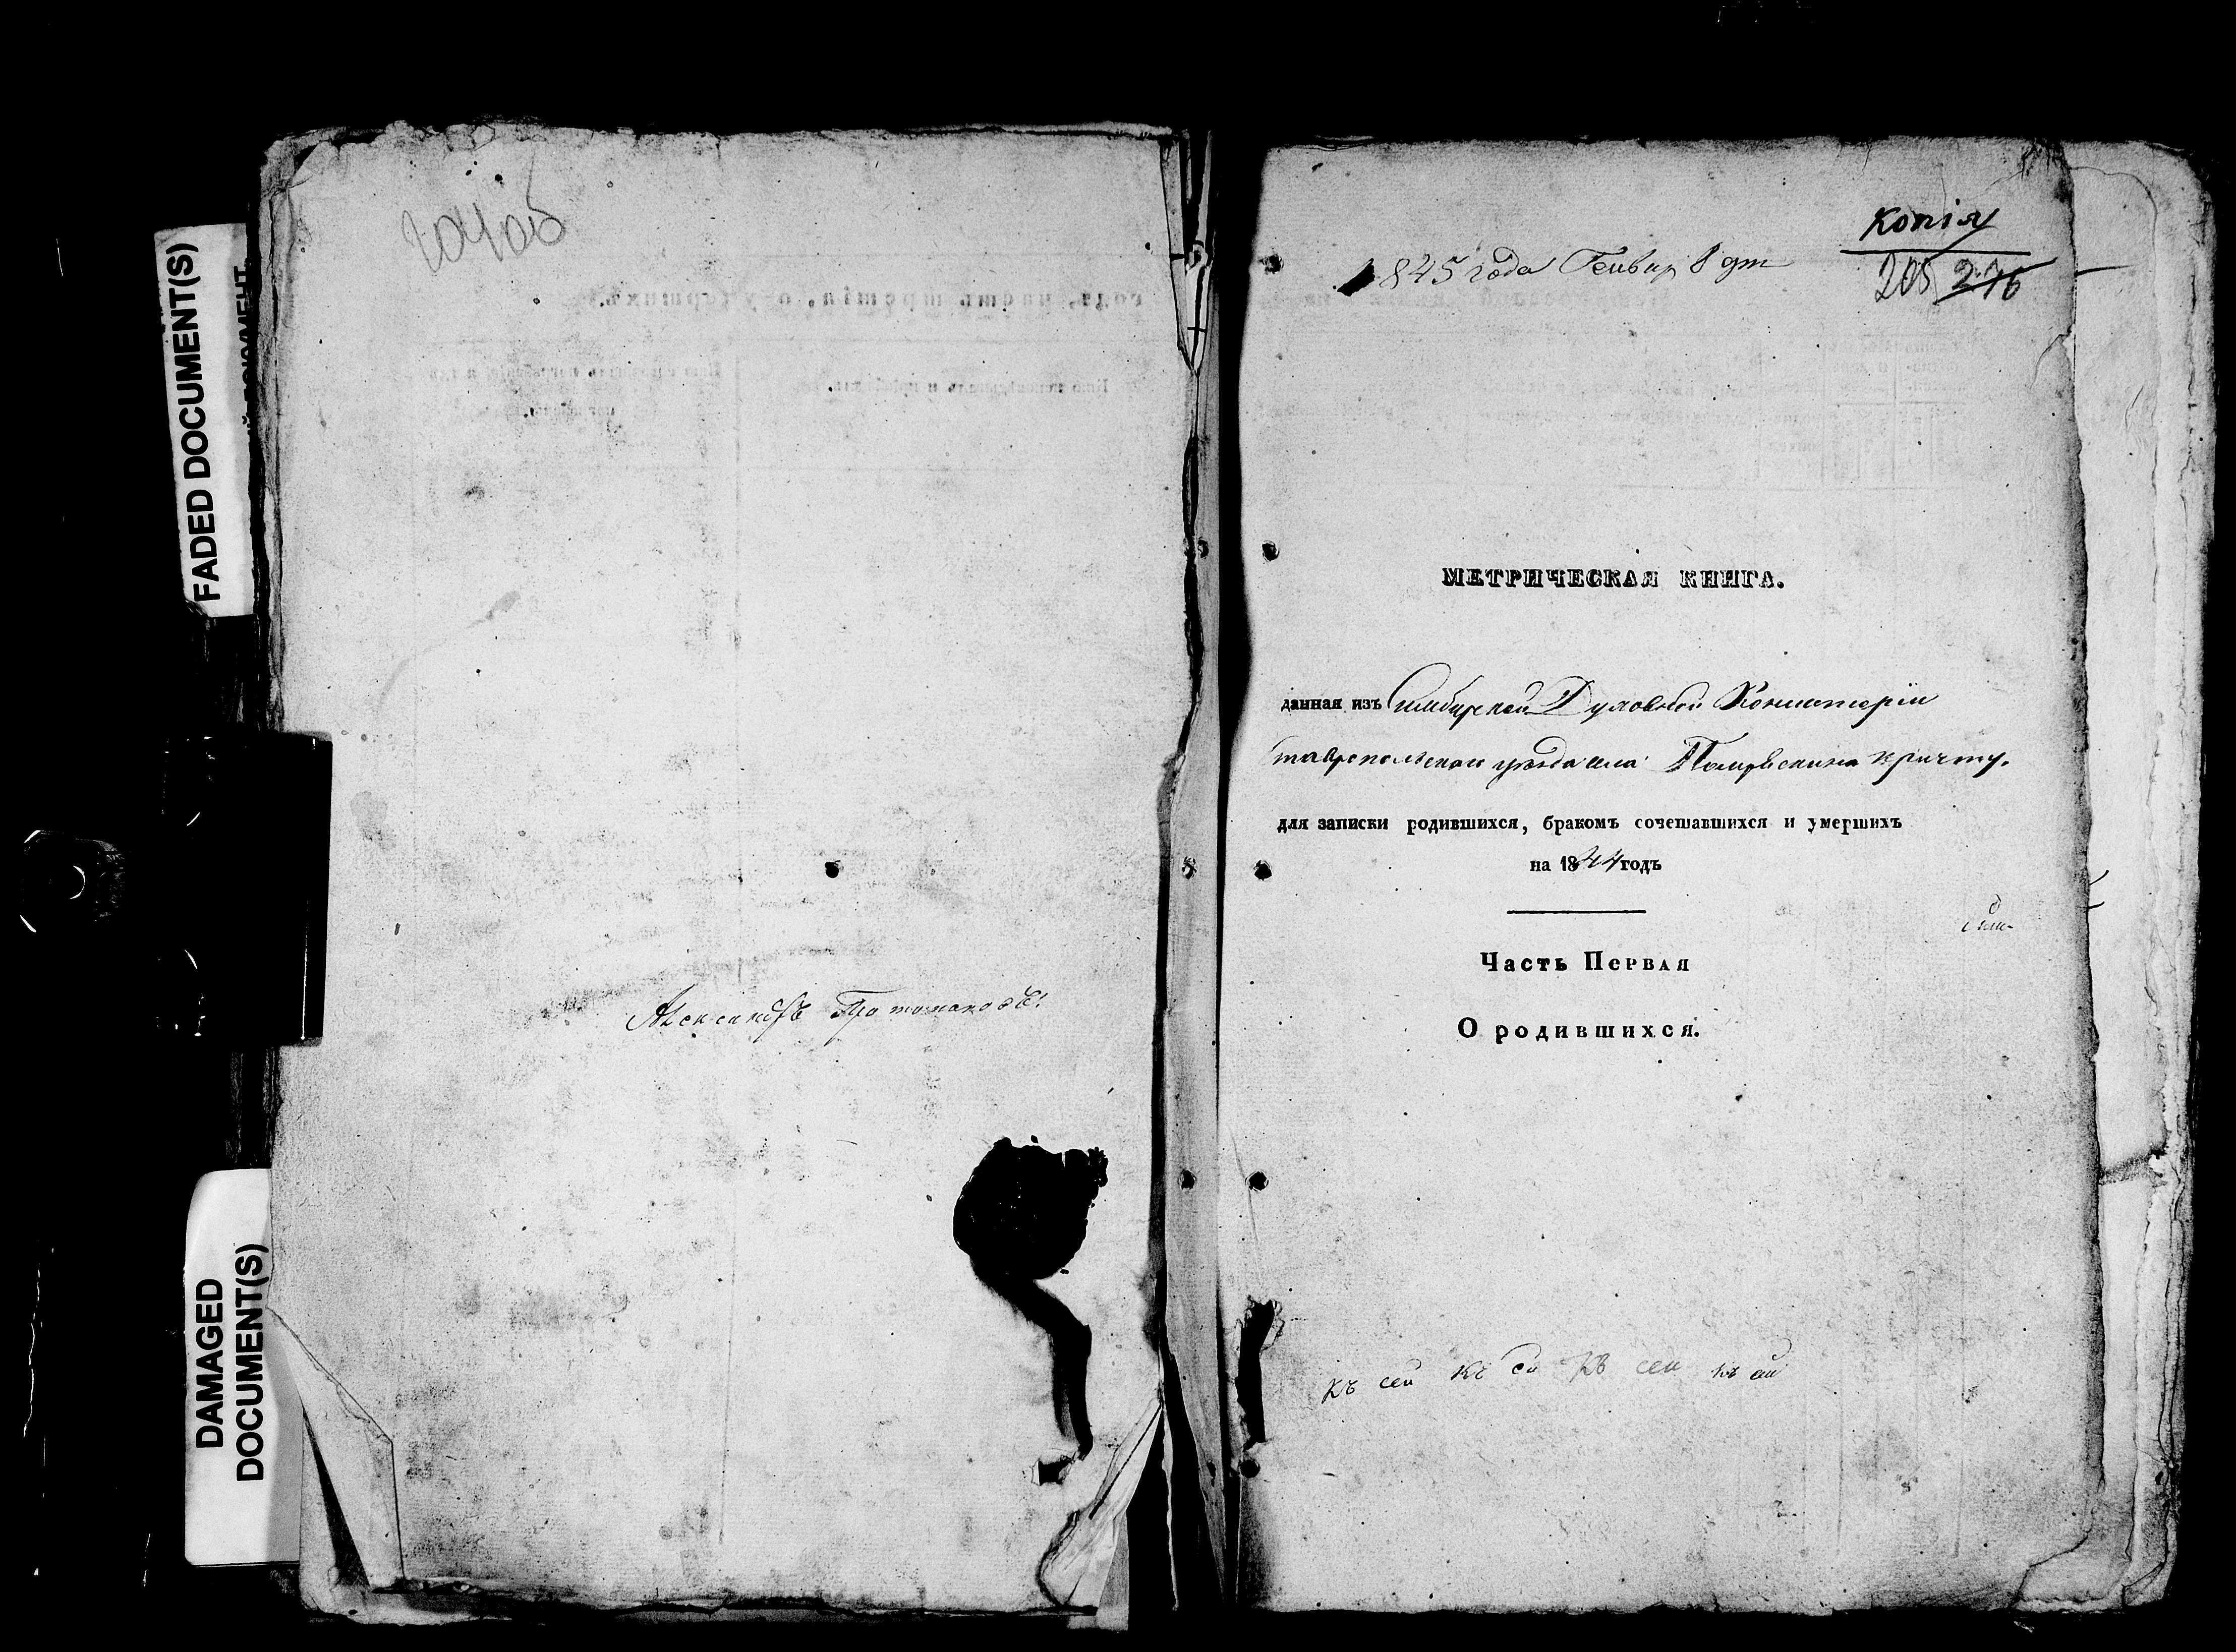 FADED DOCUMENT(S)
DAMAGED
DOCUMENT(S)
204об
Александръ
копія
1845 года Генвар 8 дня
205 276
МЕТРИЧЕСКАЯ КНИГА.
данная изъ Симбирской Духовной Консисторіи
ставропольскаго уѣзда села причту.
для записки родившихся, бракомъ сочетавшихся и умершихъ
на 1844 годъ
Часть Первая
О родившихся.
къ сей къ се къ сей къ сей